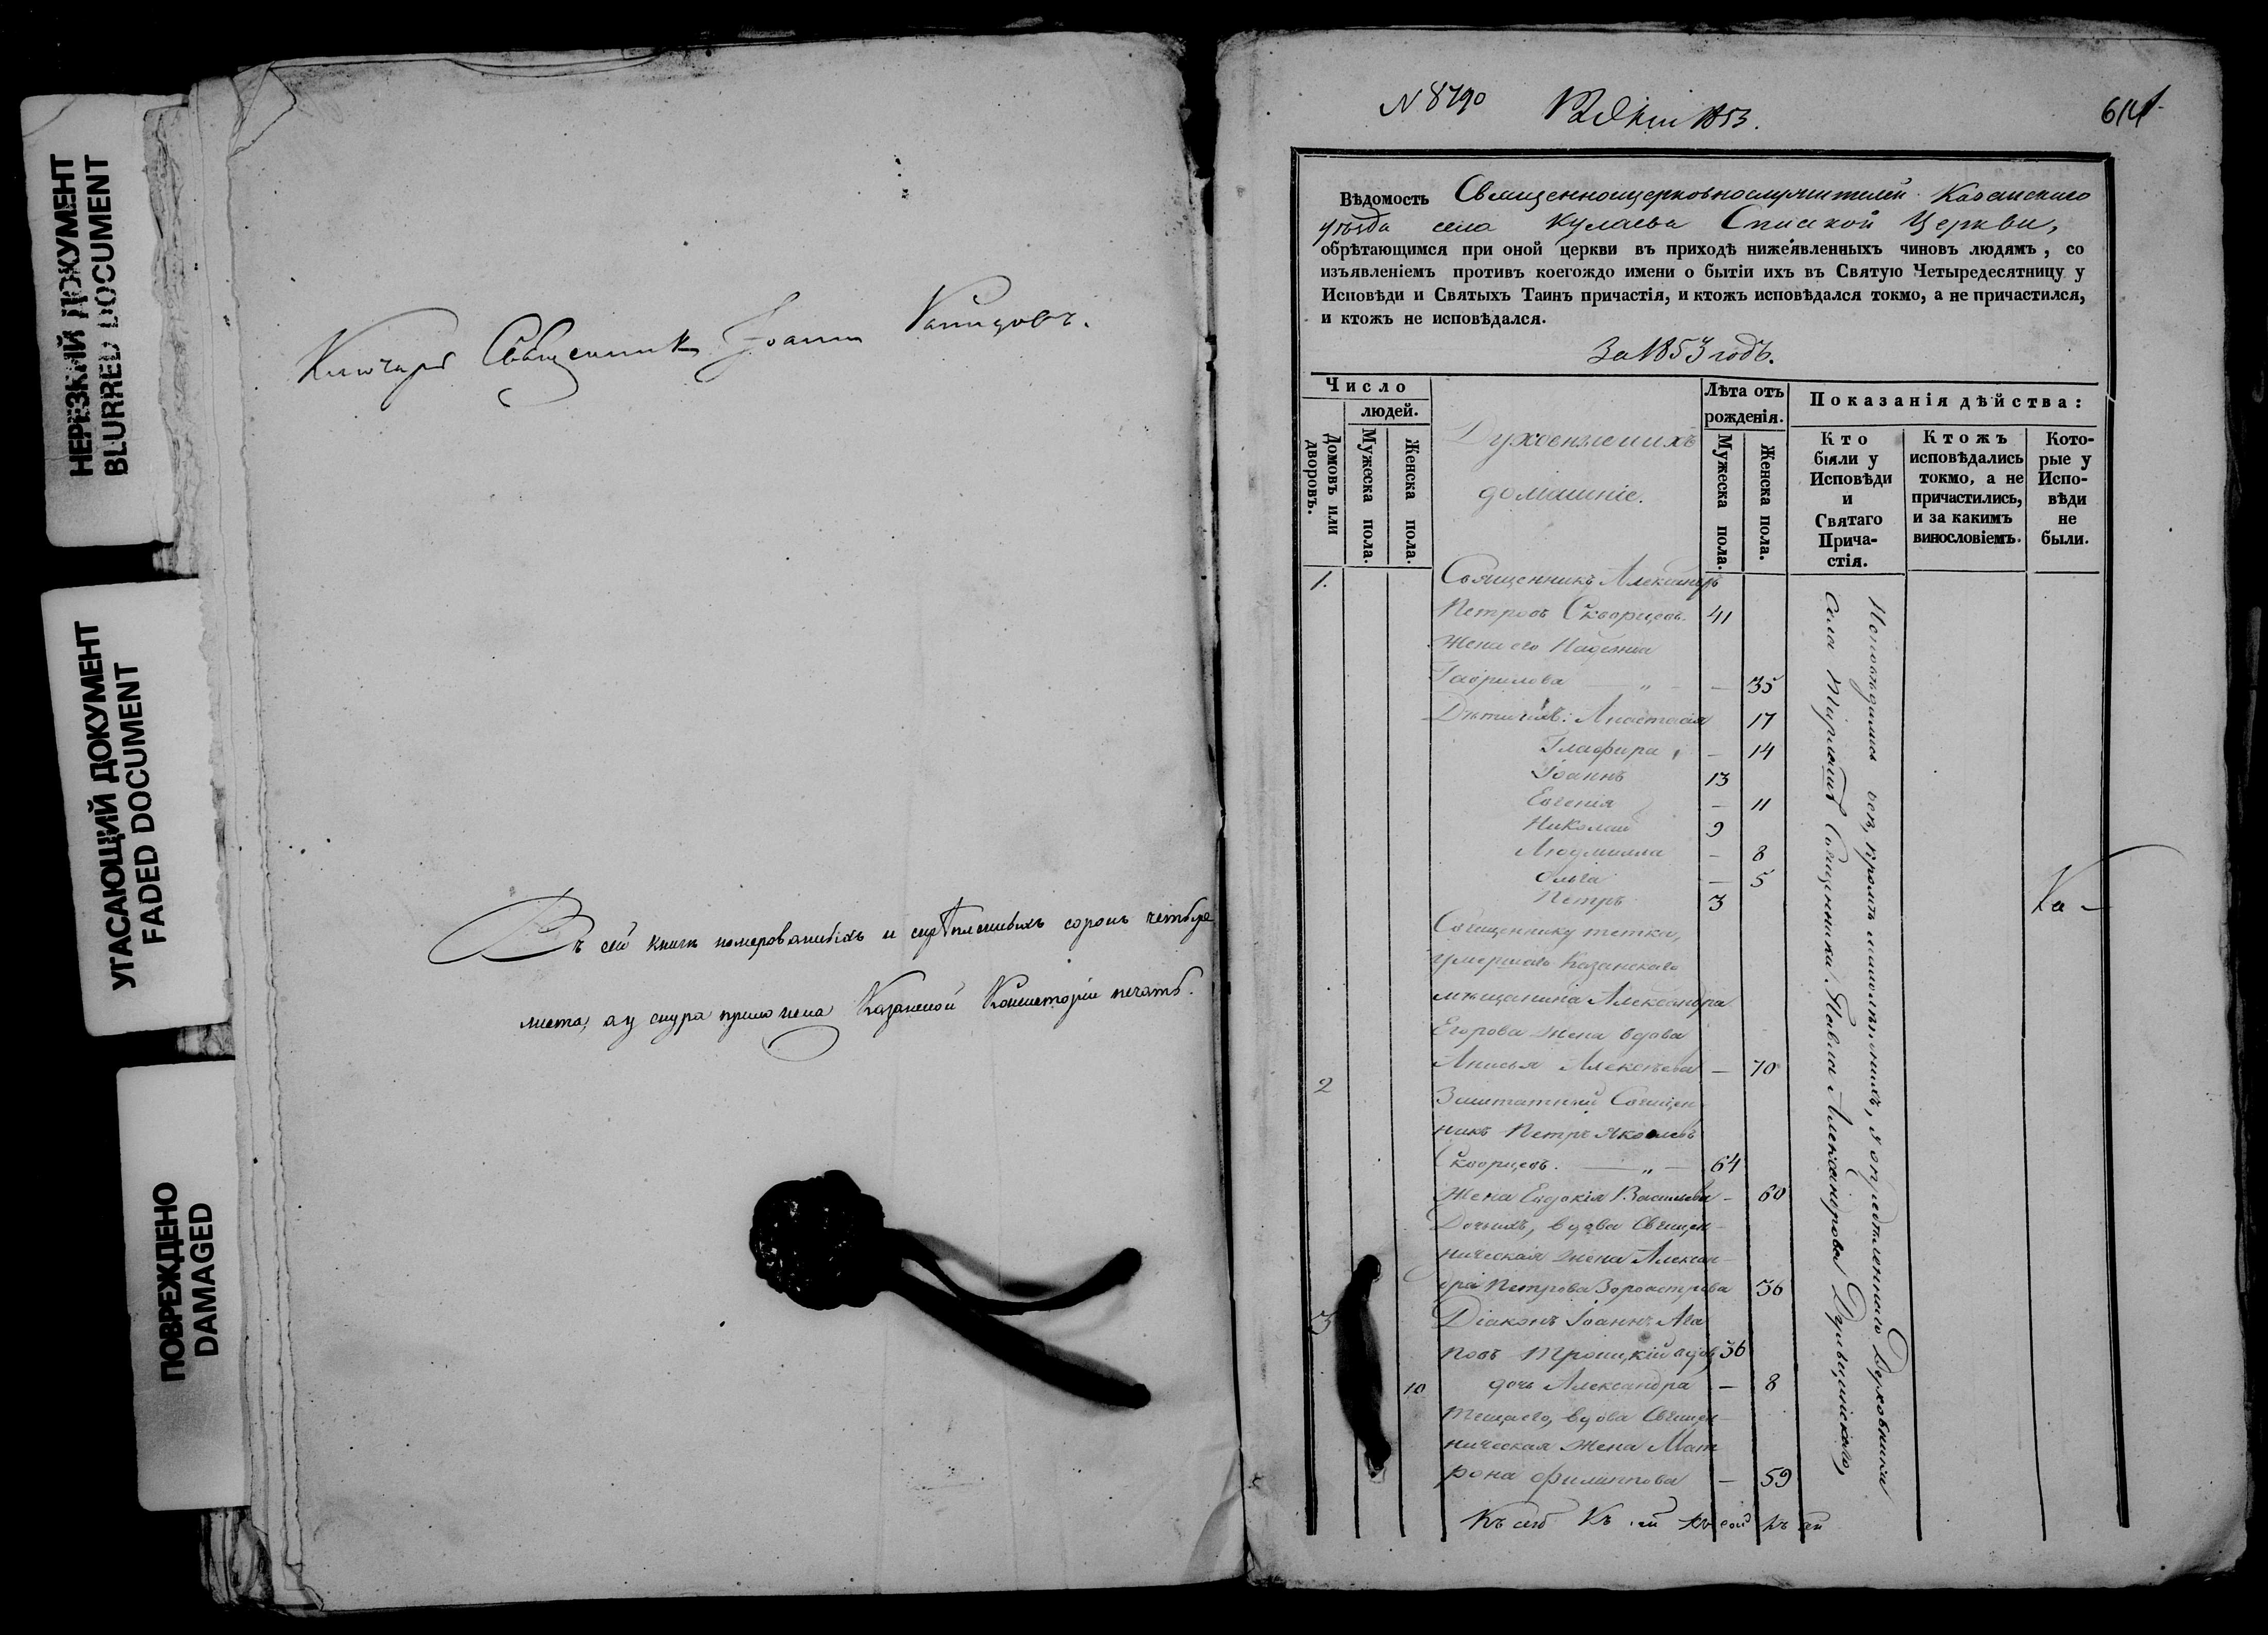 НЕРЕЗКИЙ ДОКУМЕНТ
BLURRED DOCUMENT
УГАСАЮЩИЙ ДОКУМЕНТ
FADED DOCUMENT
ПОВРЕЖДЕНО
DAMAGED
Ключарь Священникъ Іоаннъ
Въ сей книгѣ номерованныхъ и скрѣпленныхъ сорокъ четыре
листа, а у снура приложена Казанской Консисторіи печать.
N 8790
1853.
614
Вѣдомость Священноцерковнослужителей Казанскаго
уѣзда села Кулаева Спаской Церкви,
обрѣтающимся при оной церкви въ приходѣ нижеявленныхъ чиновъ людямъ, со
изъявленіемъ противъ коегождо имени о бытіи ихъ въ Святую Четыредесятницу у
Исповѣди и Святыхъ Таинъ причастія, и ктожъ исповѣдался токмо, а не причастился,
и ктожъ не исповѣдался.
За 1853 годъ.
Число
людей.
Домовъ или дворовъ.
Мужеска пола.
Женска пола.
Духовные и ихъ
домашніе.
Лѣта отъ
рожденія.
Мужеска пола.
Женска пола.
Показанія дѣйства:
Кто
были у
Исповѣди
и
Святаго
Прича-
стія.
Ктожъ
исповѣдались
токмо, а не
причастились,
и за какимъ
винословіемъ.
Кото-
рые у
Испо-
вѣди
не
были.
1. Священникъ Александръ
Петровъ Скворцовъ. 41
Жена его Надежда
Гаврилова — „ — — 35
Дѣти ихъ: Анастасія 17
Глафира, — 14
Іоаннъ 13
Евгенія — 11
Николай 9
Людмилла — 8
Ольга — 5
Петръ 3
Священнику тетка,
умершаго Казанскаго
мѣщанина Александра
Егорова жена вдова
Анисья Алексѣева — 70
2 Заштатный Священ-
никъ Петръ Яковлевъ
Скворцовъ. — „ — 64
Жена Евдокія Васильева — 60
Дочь ихъ, вдова Священ-
ническая жена Алексан-
дра Петрова Зороастрова 36
3 Діаконъ Іоаннъ Ага
повъ Троицкій вдов 36
10 дочь Александра — 8
Теща его, вдова Священ-
ническая жена Мат
рона Филиппова — 59
Исповѣдались всѣ, кромѣ малолѣтнихъ, у опредѣленнаго Духовника
села Священника Павла Александрова
Ка —
Къ сей Къ сей къ сей къ сей